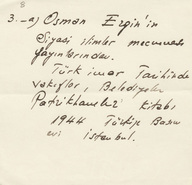 8
3.-a) Osman Ergin'in
Siyasi ilimler mecmuası
yayınlarından.
Türk imar Tarihinde
Vakıflar, Belediyeler
Patrikhaneler kitabı
1944 Türkiye Basım
evi İstanbul.